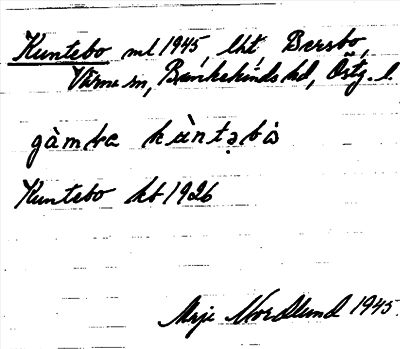 Kuntebo ml 1945, lht, Bersbo,
Värna sn, Bankekinds hd, Östg. l.
gàmbɑ kùntəbò
Kuntebo kb 1926
Maji Nordlund 1945.